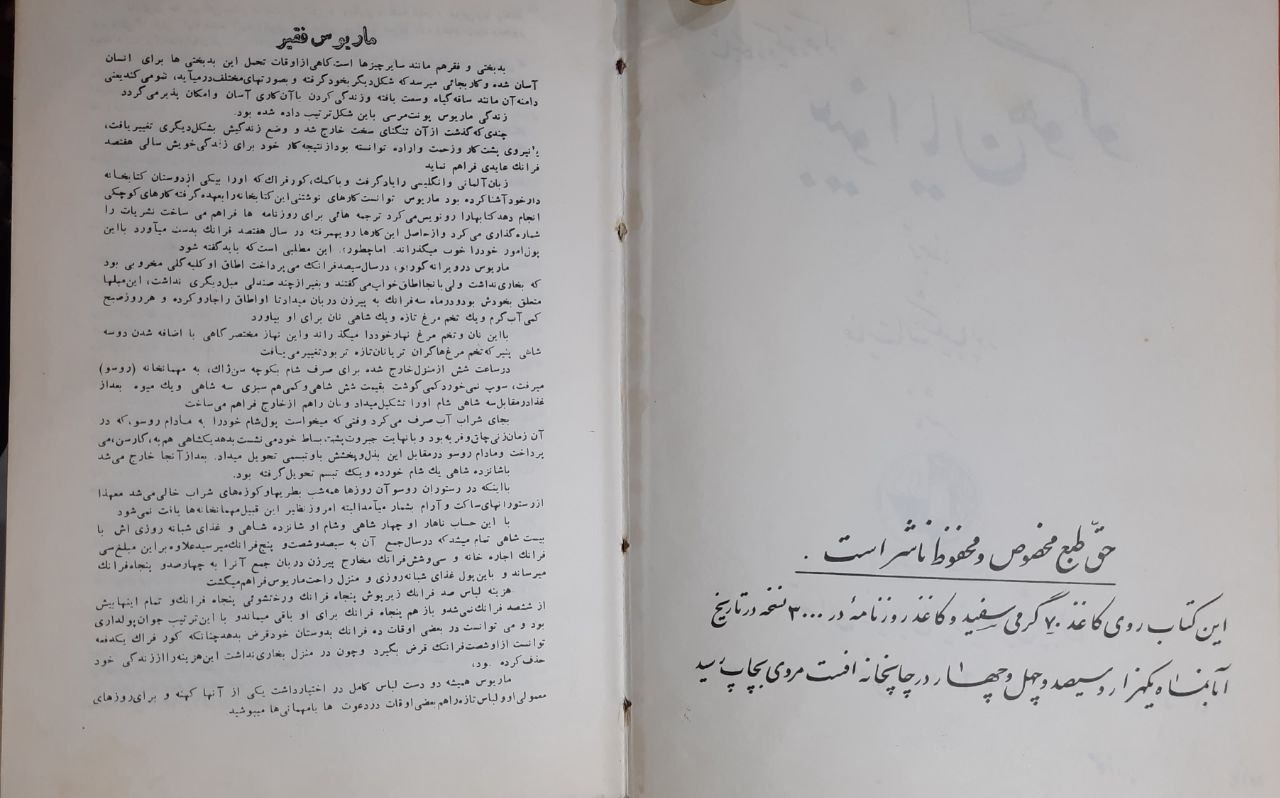 حق طبع مخصوص و محفوظ ناشر است .
این کتاب روی کاغذ ۷۰ گرمی سفید و کاغذ روزنامهٔ در ۳۰۰۰ نسخه در تاریخ
آبانماه یکهزار و سیصد و چهل و چهار در چاپخانه افست مروی بچاپ رسید
ماریوس فقیر
بدبختی و فقرهم مانند سایرچیزها است گاهی از اوقات تحمل این بدبختی ها برای انسان
آسان شده و کار بجائی میرسد که شکل دیگر بخود گرفته و بصورتهای مختلف درمیآید، نمو می کند یعنی
دامنه آن مانند ساقه گیاه وسعت یافته و زندگی کردن با آن کاری آسان وامکان پذیر می گردد
زندگی ماریوس پونت مرسی باین شکل ترتیب داده شده بود.
چندی که گذشت از آن تنگنای سخت خارج شد و وضع زندگیش بشکل دیگری تغییر یافت،
با نیروی پشت کار وزحمت واراده توانسته بود از نتیجه کار خود برای زندگی خویش سالی هفتصد
فرانك عایدی فراهم نماید
زبان آلمانی وانگلیسی را یاد گرفت و با کمك، کورفراك که اورا بیکی از دوستان کتابخانه
دار خود آشنا کرده بود ماریوس توانست کارهای نوشتنی این کتابخانه را بعهده گرفته کارهای کوچکی
انجام دهد کتابها را رونویس می کرد ترجمه هائی برای روزنامه ها فراهم می ساخت نشریات را
شماره گذاری می کرد و از حاصل این کارها رویهمرفته در سال هفتصد فرانك بدست میآورد با این
پول امور خود را خوب میگذراند. اما چطور؟. این مطلبی است که باید گفته شود
ماریوس در ویرانه گوربو، در سال سیصد فرانك می پرداخت اطاق او کلبه گلی مخروبی بود
که بخاری نداشت ولی بآنجا اطاق خواب می گفتند و بغیر از چند صندلی مبل دیگری نداشت، این مبلها
متعلق بخودش بود و در ماه سه فرانك به پیرزن دربان میداد تا او اطاق را جارو کرده و هر روز صبح
کمی آب گرم و یك تخم مرغ تازه و یك شاهی نان برای او بیاورد
با این نان و تخم مرغ نهار خود را میگذراند و این نهار مختصر گاهی با اضافه شدن دوسه
شاهی پنیر که تخم مرغ ها گران تر یا نان تازه تر بود تغییر می یافت
در ساعت شش از منزل خارج شده برای صرف شام بکوچه سن ژاك، به مهمانخانه (روسو)
میرفت، سوپ نمی خورد کمی گوشت بقیمت شش شاهی و کمی هم سبزی سه شاهی ویك میوه بعد از
غذا در مقابل سه شاهی شام او را تشکیل میداد و نان را هم از خارج فراهم می ساخت
بجای شراب آب صرف می کرد وقتی که میخواست پول شام خود را به مادام روسو، که در
آن زمان زنی چاق و فربه بود و با نهایت جبروت پشت بساط خود می نشست بدهد یکشاهی هم به، گارسن، می
پرداخت و مادام روسو در مقابل این بذل و بخشش باو تبسمی تحویل میداد. بعد از آنجا خارج می شد
با شانزده شاهی یك شام خورده و یك تبسم تحویل گرفته بود.
با اینکه در رستوران روسو آن روزها همه شب بطریها و کوزه های شراب خالی می شد معهذا
از رستورانهای ساکت و آرام بشمار میآمد البته امروز نظیر این قبیل مهمانخانه ها یافت نمی شود
با این حساب ناهار او چهار شاهی و شام او شانزده شاهی و غذای شبانه روزی اش با
بیست شاهی تمام میشد که در سال جمع آن به سیصد و شصت و پنج فرانك میرسید علاوه بر این مبلغ سی
فرانك اجاره خانه و سی و شش فرانك مخارج پیرزن دربان جمع آنرا به چهارصد و پنجاه فرانك
میرساند و با این پول غذای شبانه روزی و منزل راحت ماریوس فراهم میگشت
هزینه لباس صد فرانك زیرپوش پنجاه فرانك و رختشوئی پنجاه فرانك و تمام اینها بیش
از ششصد فرانك نمی شد و باز هم پنجاه فرانك برای او باقی میماند و با این ترتیب جوان پولداری
بود و می توانست در بعضی اوقات ده فرانك بدوستان خود قرض بدهد چنانکه کور فراك یکدفعه
توانست از او شصت فرانك قرض بگیرد و چون در منزل بخاری نداشت این هزینه را از زندگی خود
حذف کرده بود.
ماریوس همیشه دو دست لباس کامل در اختیار داشت یکی از آنها کهنه و برای روزهای
معمولی او و لباس تازه را هم بعضی اوقات در دعوت ها یا مهمانی ها میپوشید